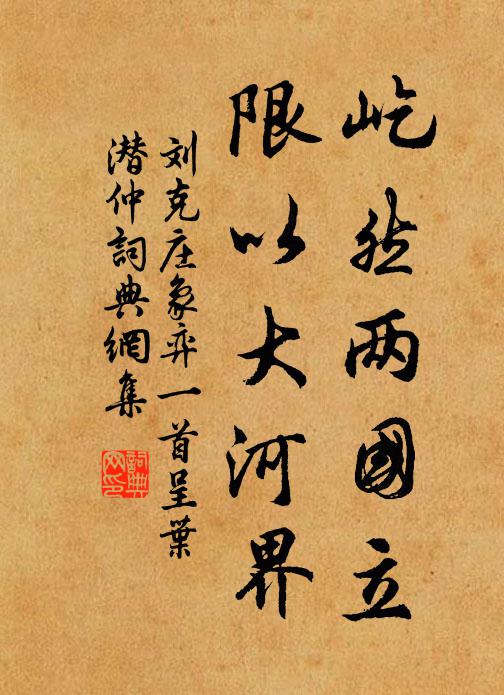 屹然两國立
限以大河界
刘克庄象弈一首呈葉
潛仲詞典網集
詞典
网印